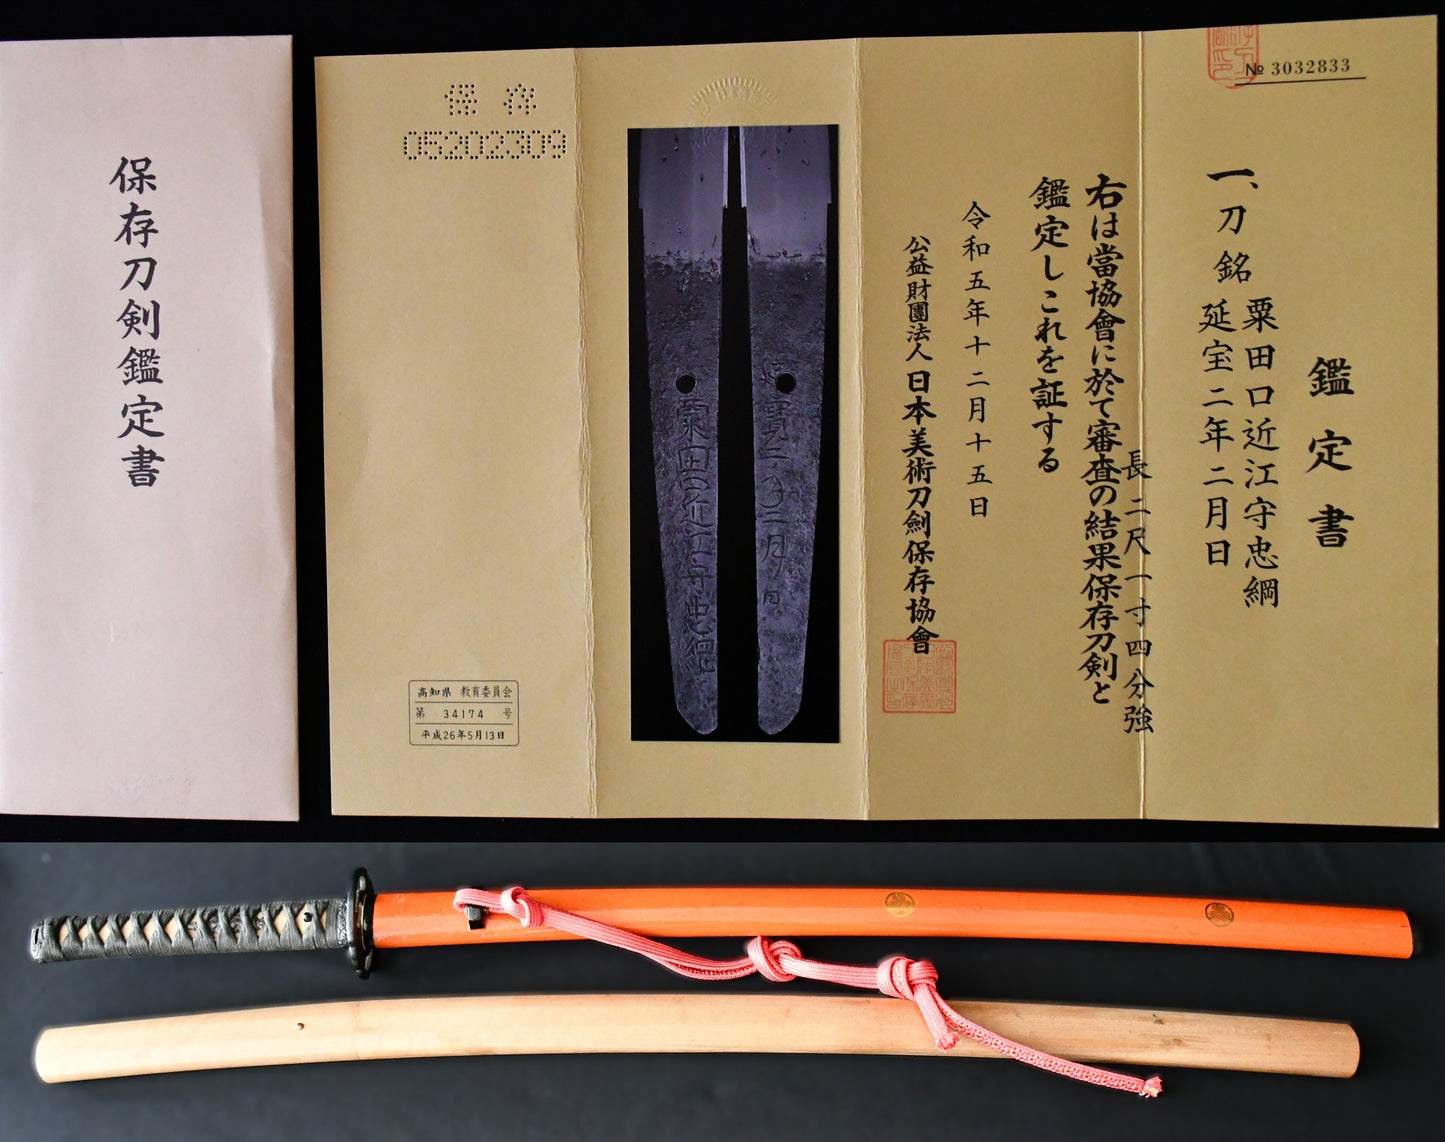 保存刀剣鑑定書
№ 3032833
鑑定書
一、刀 銘
粟田口近江守忠綱
延宝二年二月日
長二尺一寸四分強
右は當協會に於て審査の結果保存刀剣と
鑑定しこれを証する
令和五年十二月十五日
公益財團法人 日本美術刀劍保存協會
粟田口近江守忠綱
二年二月日
保存
05202309
高知県 教育委員会
第 34174 号
平成26年5月13日